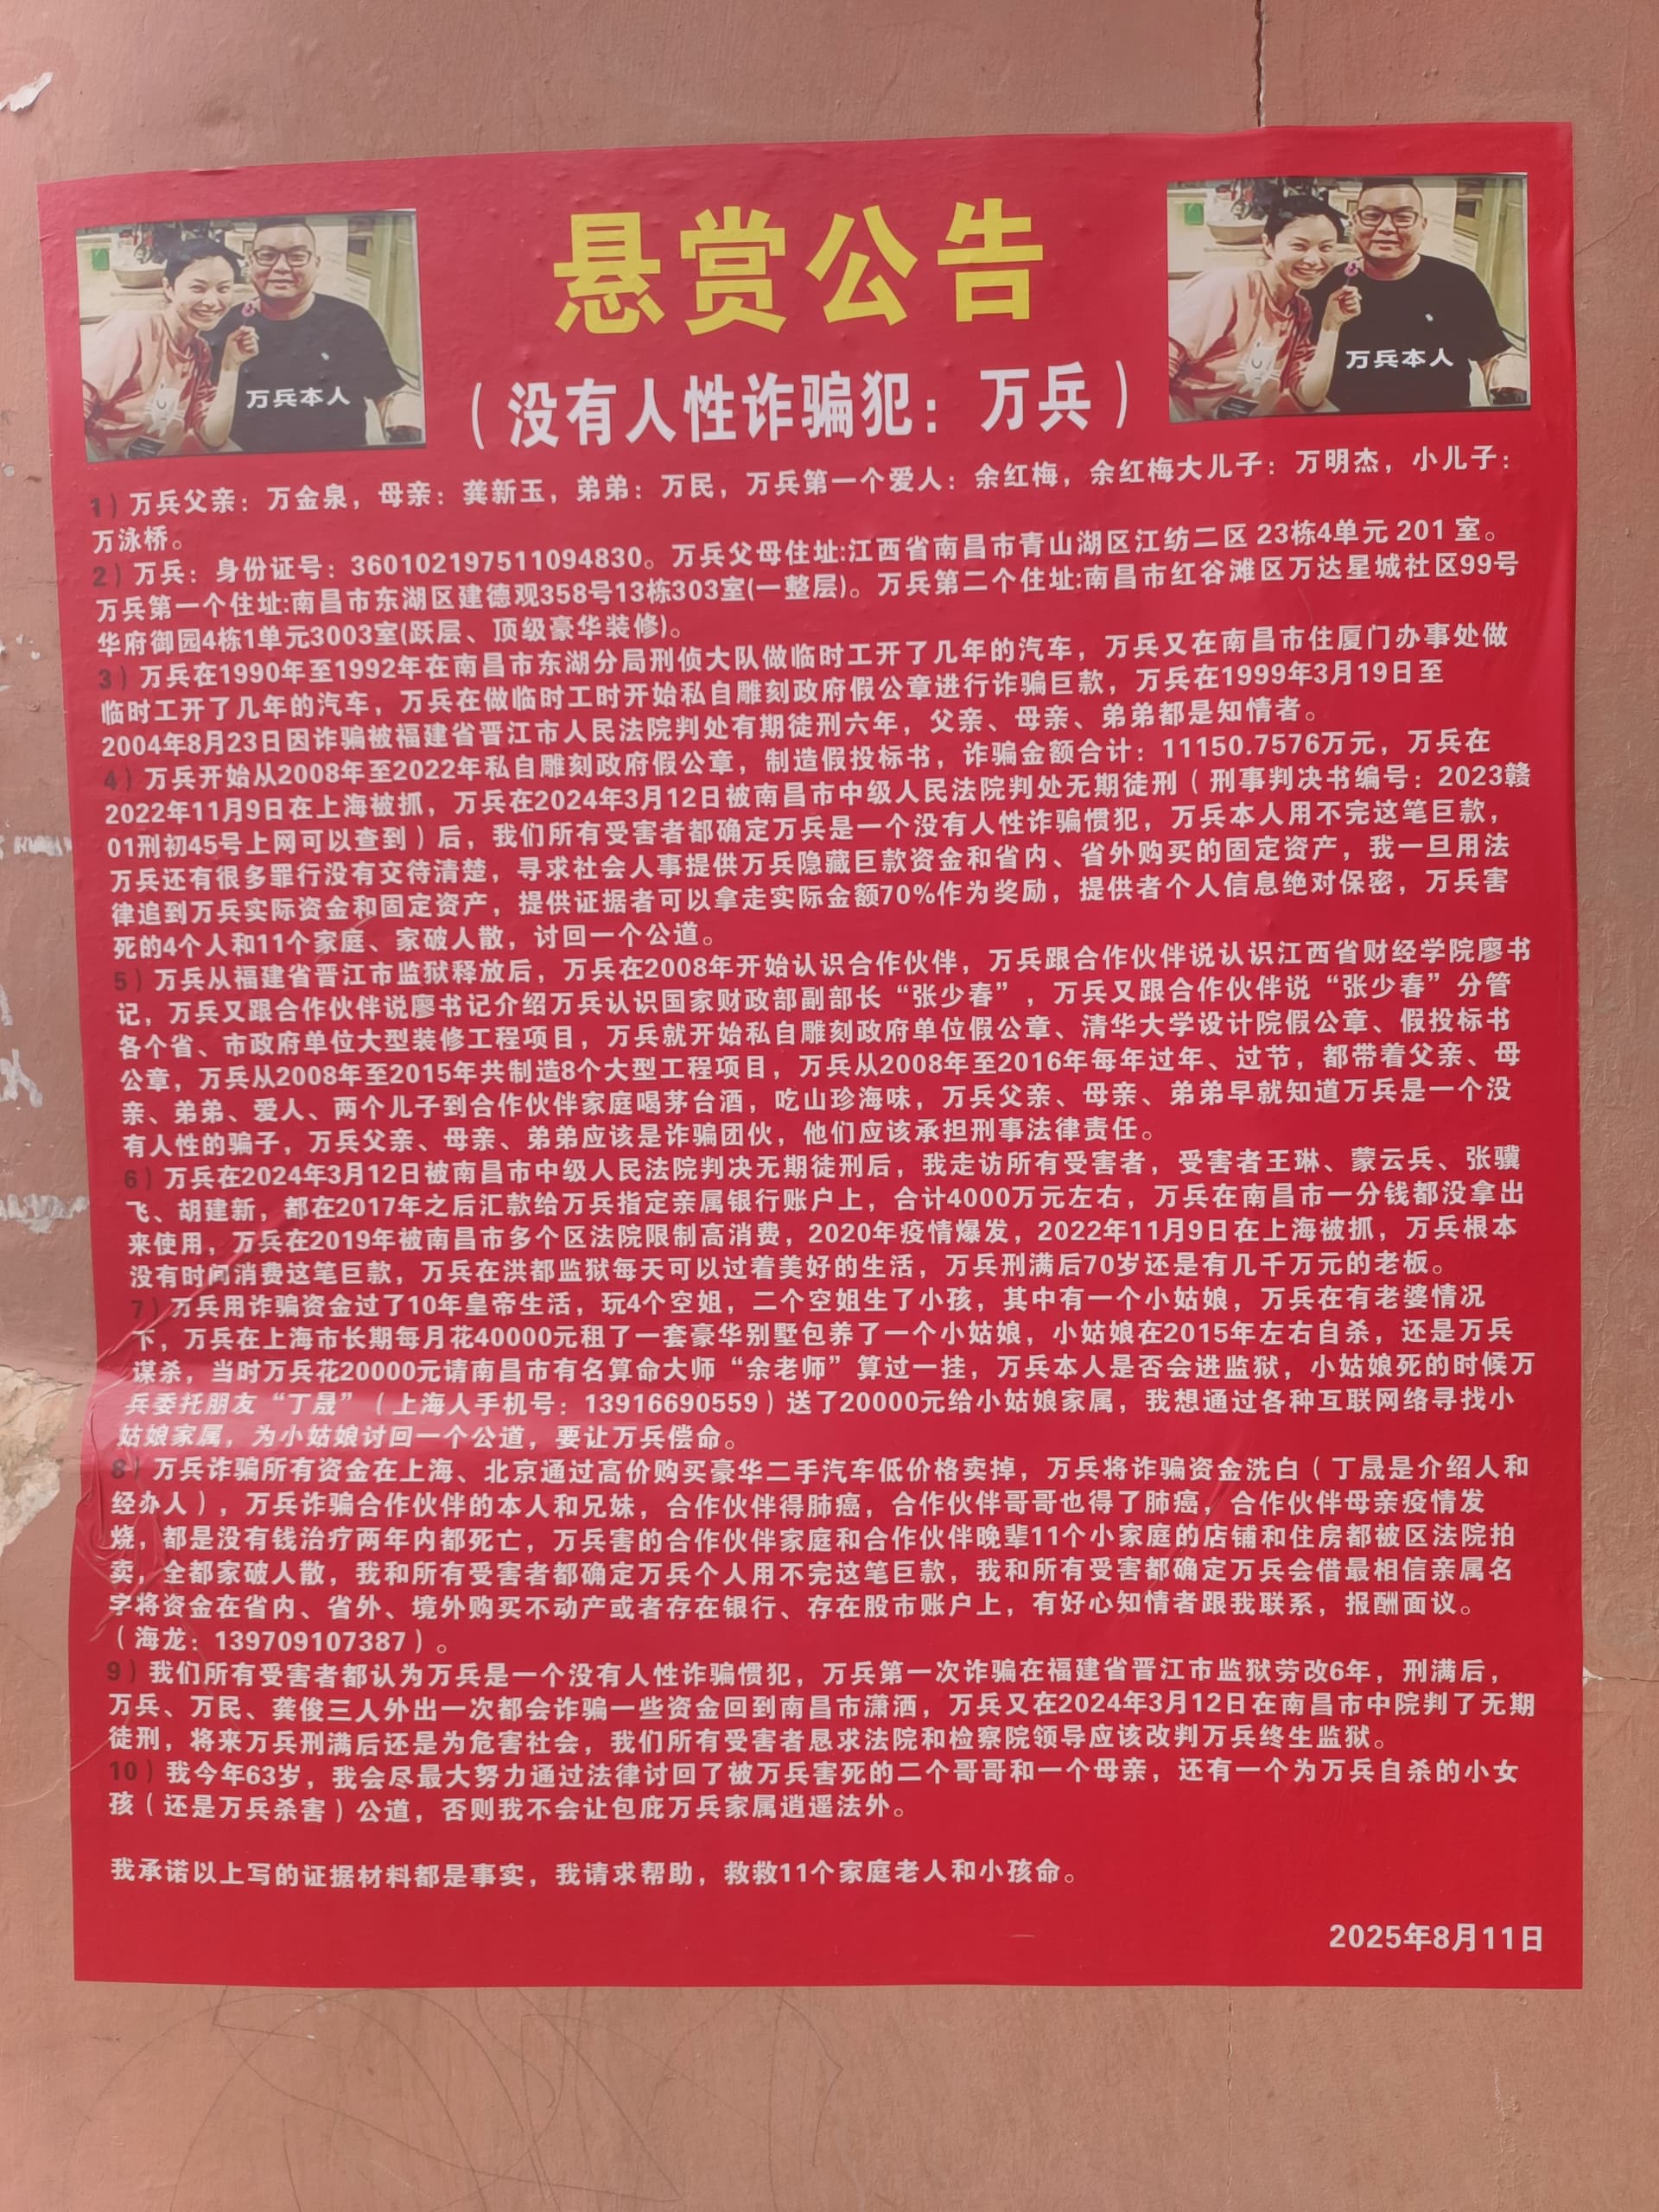 悬赏公告
（没有人性诈骗犯：万兵）
万兵本人
万兵本人
1）万兵父亲：万金泉，母亲：龚新玉，弟弟：万民，万兵第一个爱人：余红梅，余红梅大儿子：万明杰，小儿子：
万泳桥。
2）万兵：身份证号：360102197511094830。万兵父母住址:江西省南昌市青山湖区江纺二区 23栋4单元 201 室。
万兵第一个住址:南昌市东湖区建德观358号13栋303室(一整层)。万兵第二个住址:南昌市红谷滩区万达星城社区99号
华府御园4栋1单元3003室(跃层、顶级豪华装修)。
3）万兵在1990年至1992年在南昌市东湖分局刑侦大队做临时工开了几年的汽车，万兵又在南昌市住厦门办事处做
临时工开了几年的汽车，万兵在做临时工时开始私自雕刻政府假公章进行诈骗巨款，万兵在1999年3月19日至
2004年8月23日因诈骗被福建省晋江市人民法院判处有期徒刑六年，父亲、母亲、弟弟都是知情者。
4）万兵开始从2008年至2022年私自雕刻政府假公章，制造假投标书，诈骗金额合计：11150.7576万元，万兵在
2022年11月9日在上海被抓，万兵在2024年3月12日被南昌市中级人民法院判处无期徒刑（刑事判决书编号：2023赣
01刑初45号上网可以查到）后，我们所有受害者都确定万兵是一个没有人性诈骗惯犯，万兵本人用不完这笔巨款，
万兵还有很多罪行没有交待清楚，寻求社会人事提供万兵隐藏巨款资金和省内、省外购买的固定资产，我一旦用法
律追到万兵实际资金和固定资产，提供证据者可以拿走实际金额70%作为奖励，提供者个人信息绝对保密，万兵害
死的4个人和11个家庭、家破人散，讨回一个公道。
5）万兵从福建省晋江市监狱释放后，万兵在2008年开始认识合作伙伴，万兵跟合作伙伴说认识江西省财经学院廖书
记，万兵又跟合作伙伴说廖书记介绍万兵认识国家财政部副部长“张少春”，万兵又跟合作伙伴说“张少春”分管
各个省、市政府单位大型装修工程项目，万兵就开始私自雕刻政府单位假公章、清华大学设计院假公章、假投标书
公章，万兵从2008年至2015年共制造8个大型工程项目，万兵从2008年至2016年每年过年、过节，都带着父亲、母
亲、弟弟、爱人、两个儿子到合作伙伴家庭喝茅台酒，吃山珍海味，万兵父亲、母亲、弟弟早就知道万兵是一个没
有人性的骗子，万兵父亲、母亲、弟弟应该是诈骗团伙，他们应该承担刑事法律责任。
6）万兵在2024年3月12日被南昌市中级人民法院判决无期徒刑后，我走访所有受害者，受害者王琳、蒙云兵、张骥
飞、胡建新，都在2017年之后汇款给万兵指定亲属银行账户上，合计4000万元左右，万兵在南昌市一分钱都没拿出
来使用，万兵在2019年被南昌市多个区法院限制高消费，2020年疫情爆发，2022年11月9日在上海被抓，万兵根本
没有时间消费这笔巨款，万兵在洪都监狱每天可以过着美好的生活，万兵刑满后70岁还是有几千万元的老板。
7）万兵用诈骗资金过了10年皇帝生活，玩4个空姐，二个空姐生了小孩，其中有一个小姑娘，万兵在有老婆情况
下，万兵在上海市长期每月花40000元租了一套豪华别墅包养了一个小姑娘，小姑娘在2015年左右自杀，还是万兵
谋杀，当时万兵花20000元请南昌市有名算命大师“余老师”算过一挂，万兵本人是否会进监狱，小姑娘死的时候万
兵委托朋友“丁晟”（上海人手机号：13916690559）送了20000元给小姑娘家属，我想通过各种互联网络寻找小
姑娘家属，为小姑娘讨回一个公道，要让万兵偿命。
8）万兵诈骗所有资金在上海、北京通过高价购买豪华二手汽车低价格卖掉，万兵将诈骗资金洗白（丁晟是介绍人和
经办人），万兵诈骗合作伙伴的本人和兄妹，合作伙伴得肺癌，合作伙伴哥哥也得了肺癌，合作伙伴母亲疫情发
烧，都是没有钱治疗两年内都死亡，万兵害的合作伙伴家庭和合作伙伴晚辈11个小家庭的店铺和住房都被区法院拍
卖，全都家破人散，我和所有受害者都确定万兵个人用不完这笔巨款，我和所有受害都确定万兵会借最相信亲属名
字将资金在省内、省外、境外购买不动产或者存在银行、存在股市账户上，有好心知情者跟我联系，报酬面议。
（海龙：139709107387）。
9）我们所有受害者都认为万兵是一个没有人性诈骗惯犯，万兵第一次诈骗在福建省晋江市监狱劳改6年，刑满后，
万兵、万民、龚俊三人外出一次都会诈骗一些资金回到南昌市潇洒，万兵又在2024年3月12日在南昌市中院判了无期
徒刑，将来万兵刑满后还是为危害社会，我们所有受害者恳求法院和检察院领导应该改判万兵终生监狱。
10）我今年63岁，我会尽最大努力通过法律讨回了被万兵害死的二个哥哥和一个母亲，还有一个为万兵自杀的小女
孩（还是万兵杀害）公道，否则我不会让包庇万兵家属逍遥法外。
我承诺以上写的证据材料都是事实，我请求帮助，救救11个家庭老人和小孩命。
2025年8月11日